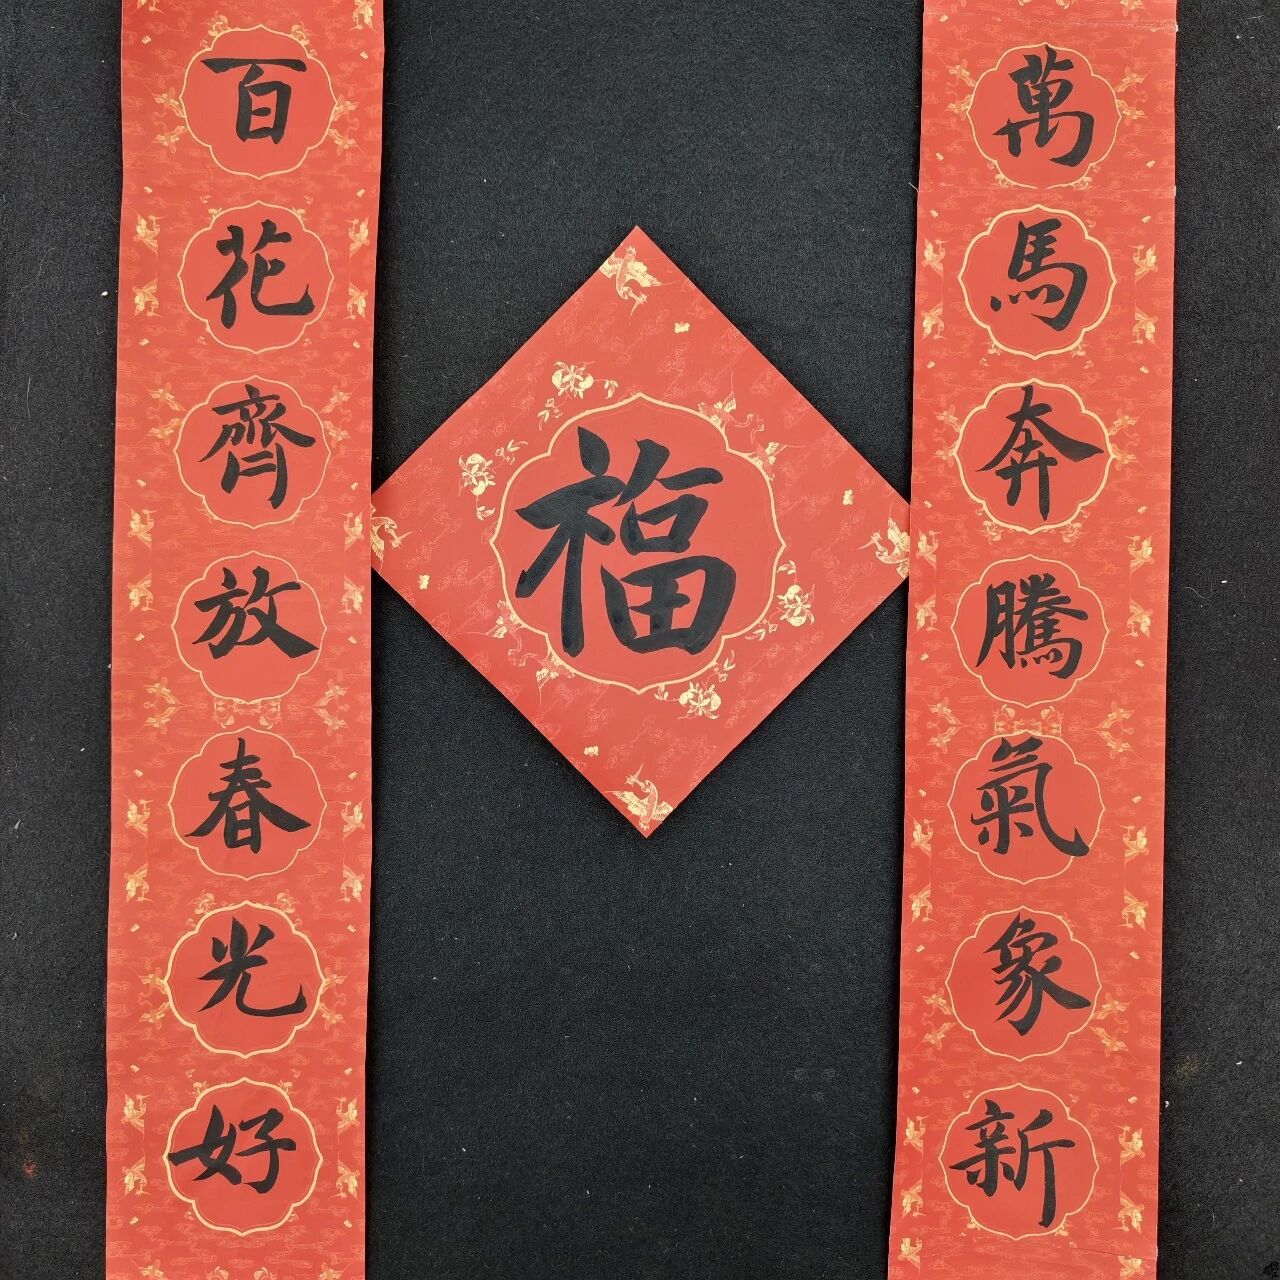 萬馬奔騰氣象新
百花齊放春光好
福